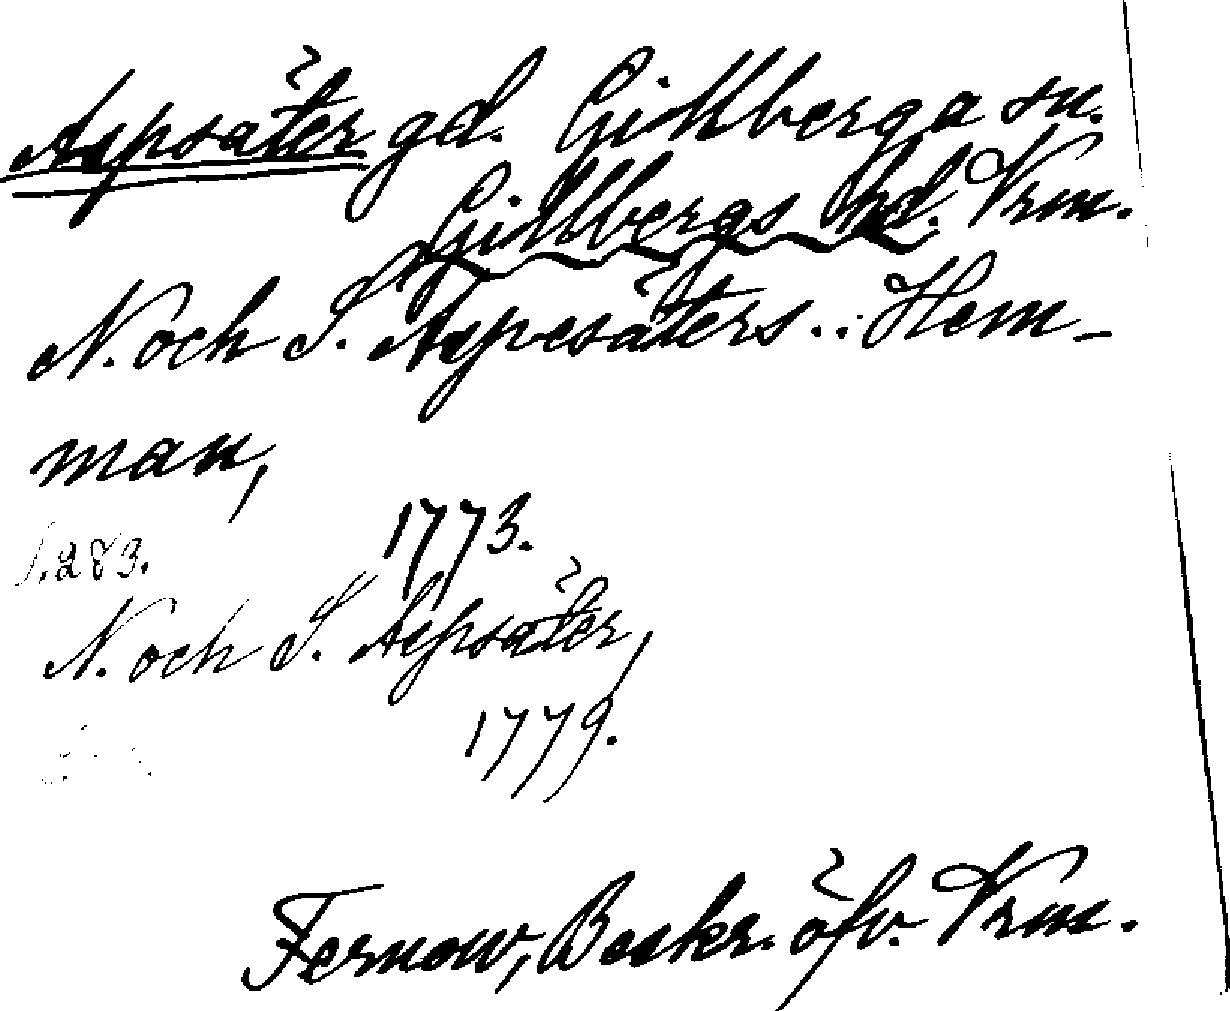 Aspsäter gd. Gillberga sn.
Gillbergs hd. Vrm.
N. och S. Aspesäters .. Hem-
man,
1773.
s. 283.
N. och S. Aspsäter,
1779.
Fernow, Beskr. öfv. Vrm.